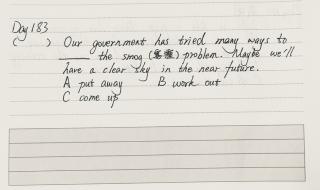 Day 183
(   ) Our government has tried many ways to
____ the smog (雾霾) problem. Maybe we'll
have a clear sky in the near future.
A put away    B work out
C come up